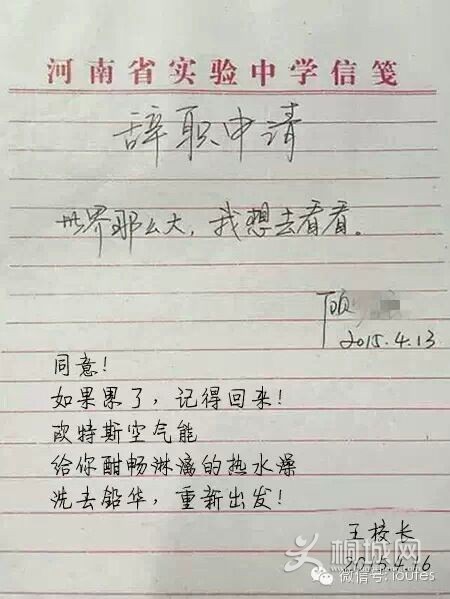 河南省实验中学信笺
辞职申请
世界那么大，我想去看看。
顾
2015.4.13
同意！
如果累了，记得回来！
欧特斯空气能
给你酣畅淋漓的热水澡
洗去铅华，重新出发！
王校长
2015.4.16
桐城网
微信号: ioutes